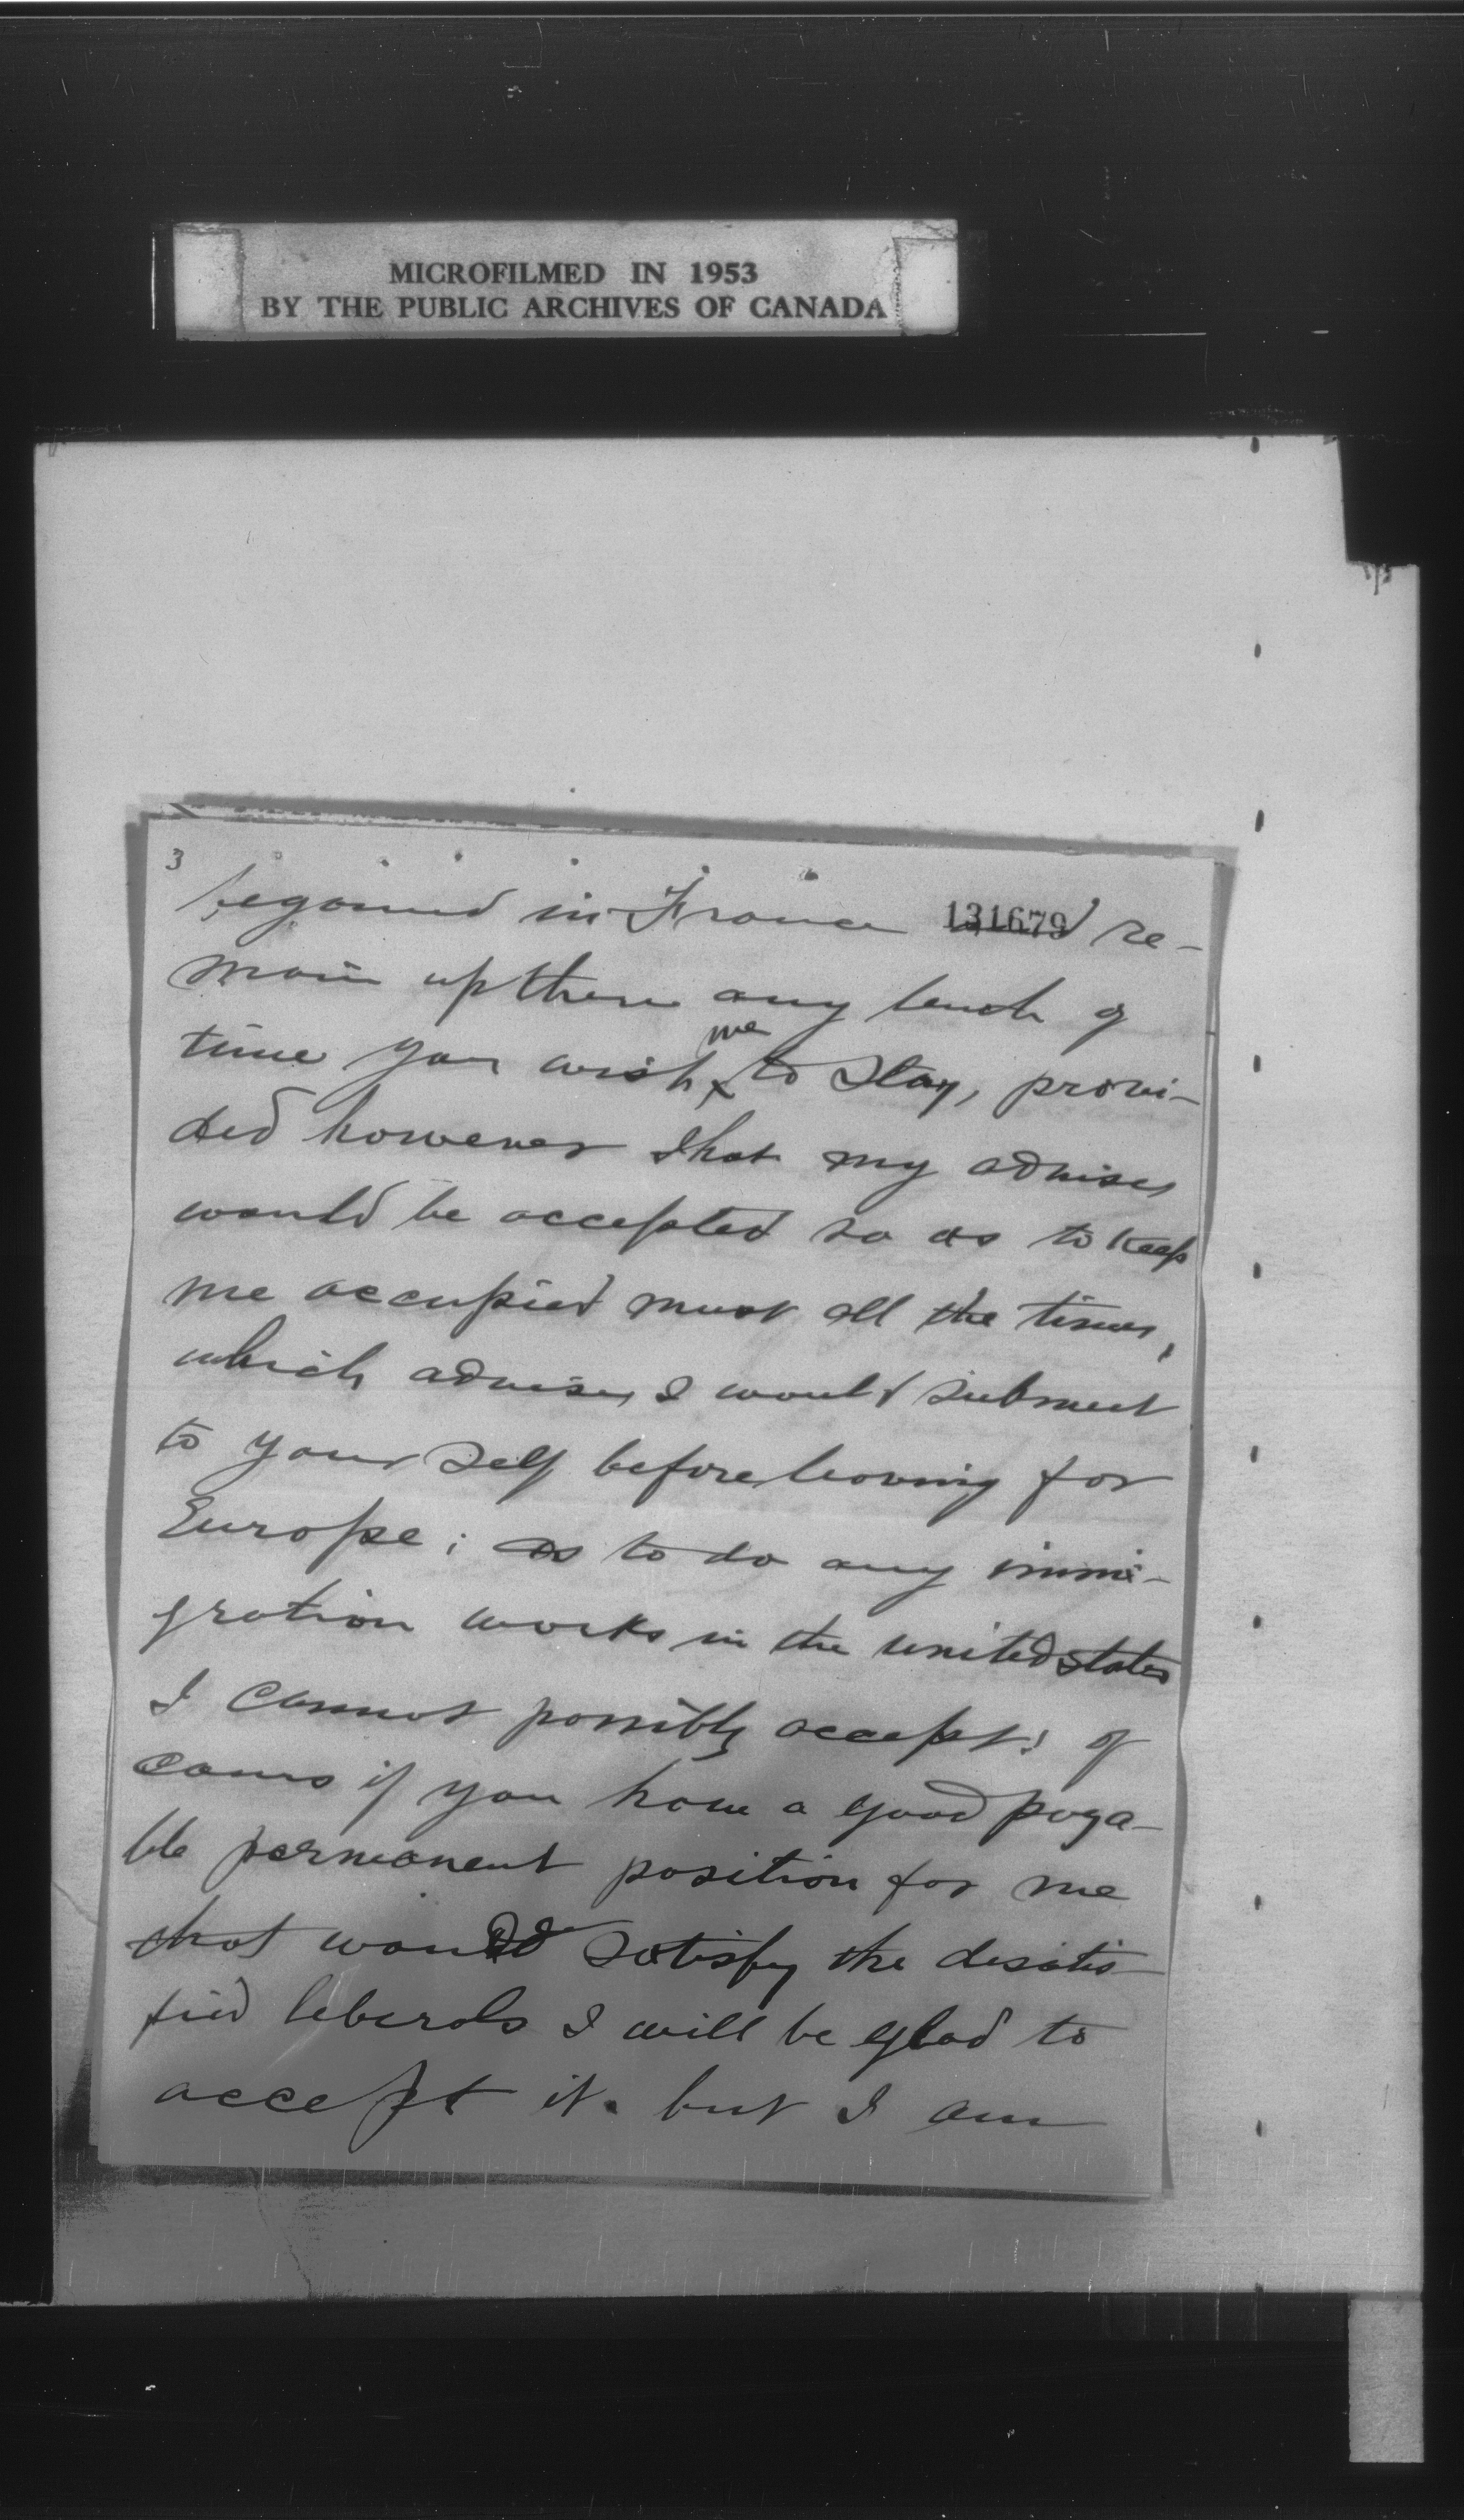 MICROFILMED IN 1953
BY THE PUBLIC ARCHIVES OF CANADA
3
in France 131679 and re-
main up there any lench of
time you wish me to Stay, provi-
ded however that my advises
would be accepted so as to keep
me occupied most all the times,
which advises I would submeet
to your Self before leaving for
Europe; as to do any immi-
gration works in the united states
I cannot possibly accept; of
cours if you have a good paya-
ble permanent position for me
that would satisfy the desatis-
fied leberals I will be glad to
accept it. but I am